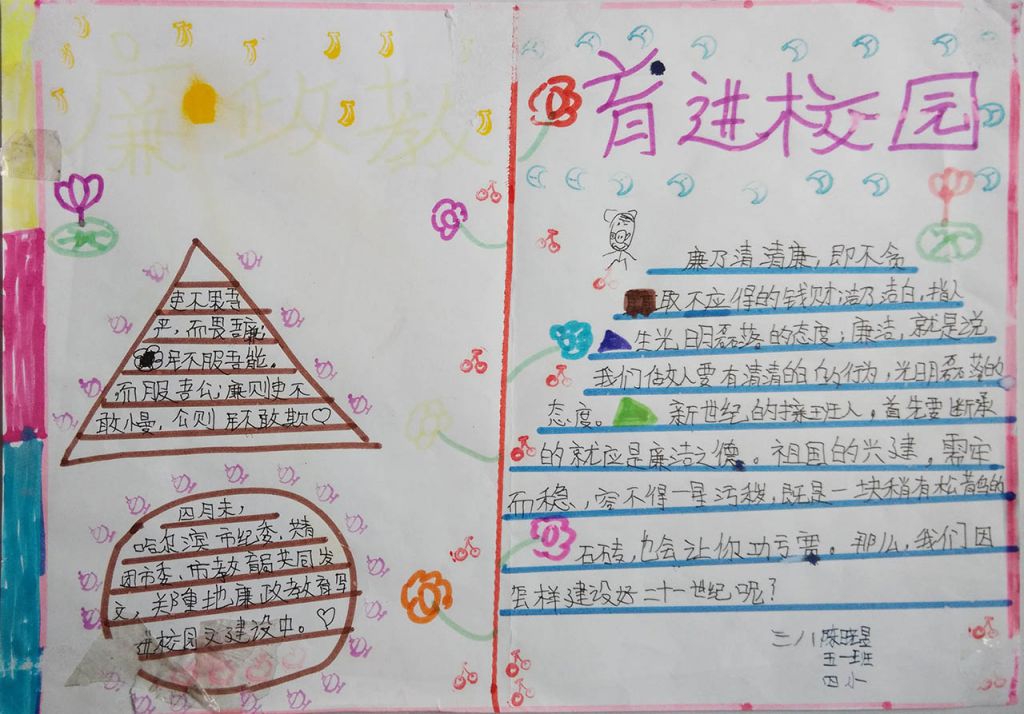 廉政教育进校园
吏不畏吾
严,而畏吾廉;
民不服吾能。
而服吾公;廉则吏不
敢慢,公则民不敢欺
四月末,
哈尔滨市纪委、共青
团市委、市教育局共同发
文,郑重地廉政教育写
进校园文建设中。
廉乃清清廉,即不贪
取不应得的钱财;洁乃洁白,指人
生光明磊落的态度;廉洁,就是说
我们做人要有清清的白的行为,光明磊落的
态度。新世纪的接班人。首先要断承
的就应是廉洁之德。祖国的兴建,需牢
而稳,容不得一星污秽,既是一块稍有松
石,也会让你功亏。那么,我们因
怎样建设好二十一世纪呢?
五一班
四小